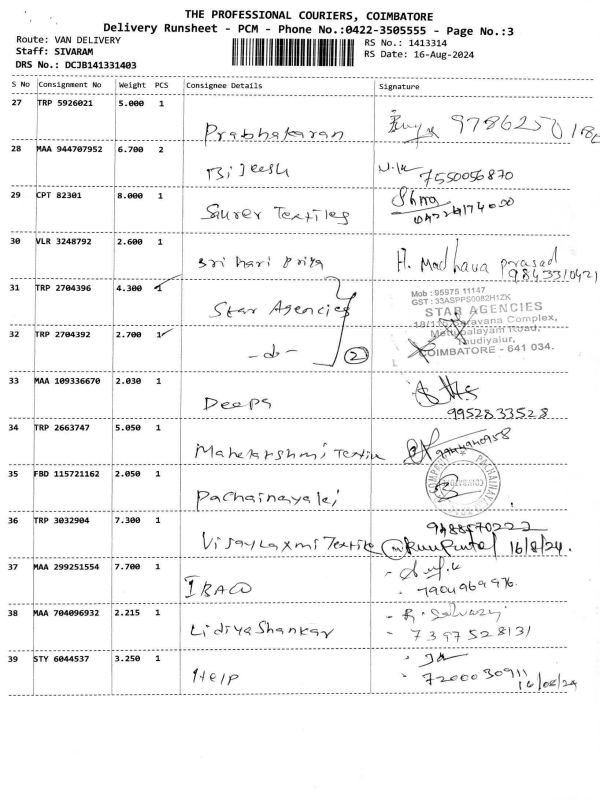 THE PROFESSIONAL COURIERS, COIMBATORE
Delivery Runsheet - PCM - Phone No.:0422-3505555 - Page No.:3
Route: VAN DELIVERY
RS No.: 1413314
Staff: SIVARAM
RS Date: 16-Aug-2024
DRS No.: DCJB141331403
S No Consignment No Weight PCS Consignee Details Signature
27 TRP 5926021 5.000 1
Prabhakaran
28 MAA 944707952 6.700 2
Bijeesh 7550056870
29 CPT 82301 8.000 1
Saurer Textiles
30 VLR 3248792 2.600 1
Sri Hari Priya H. Madhava prasad
9843310421
31 TRP 2704396 4.300 1
Star Agencies
Mob : 95975 11147
GST : 33ASPPS0082H1ZK
STAR AGENCIES
Complex,
32 TRP 2704392 2.700 1
-do- 2
Mettupalayam Road,
Thudiyalur,
COIMBATORE - 641 034.
33 MAA 109336670 2.030 1
Deepa
9952833528
34 TRP 2663747 5.050 1
9944940958
35 FBD 115721162 2.050 1
Pachainayaki
36 TRP 3032904 7.300 1
Vijaylaxmi Textile 16/8/24.
37 MAA 299251554 7.700 1
IBACO
7904969976
38 MAA 704096932 2.215 1
Lidiya Shankar
7397528131
39 STY 6044537 3.250 1
Help
7200030911
16/08/24